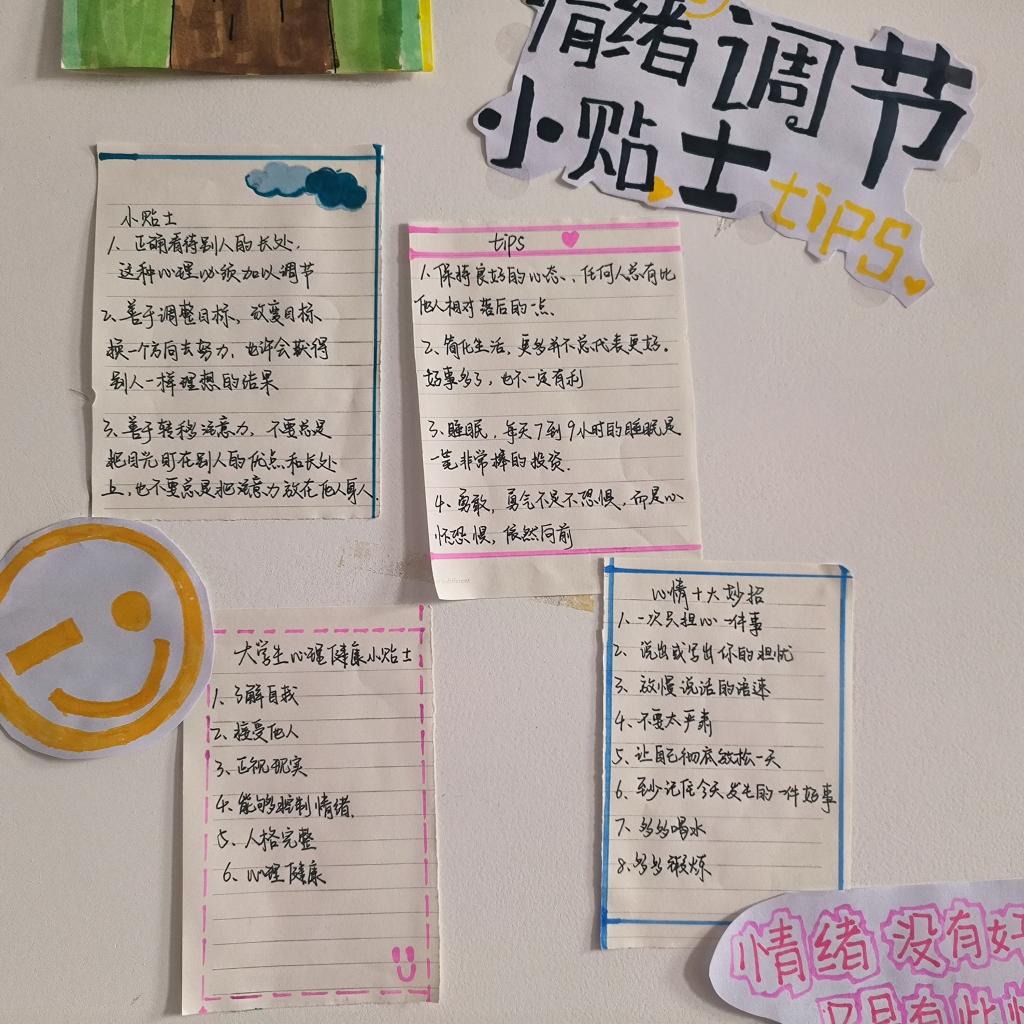 情绪调节
小贴士
tips
小贴士
1、正确看待别人的长处,
这种心理必须加以调节
2、善于调整目标,改变目标
换一个方向去努力,也许会获得
别人一样理想的结果
3、善于转移注意力,不要总是
把目光盯在别人的优点和长处
上,也不要总是把注意力放在他人身上
tips
1、保持良好的心态、任何人总有比
他人相对落后的一点.
2、简化生活,更多并不总代表更好。
好事多了,也不一定有利
3、睡眠,每天7到9小时的睡眠是
一笔非常棒的投资.
4、勇敢,勇气不是不恐惧,而是心
怀恐惧,依然向前
大学生心理健康小贴士
1、了解自我
2、接受他人
3、正视现实
4、能够控制情绪.
5、人格完整
6、心理健康
心情十大妙招
1、一次只担心一件事
2、说出或写出你的担忧
3、放慢说话的语速
4、不要太严肃
5、让自己彻底放松一天
6、至少记住今天发生的一件好事
7、多多喝水
8、多多锻炼
情绪没有好
只是有此情